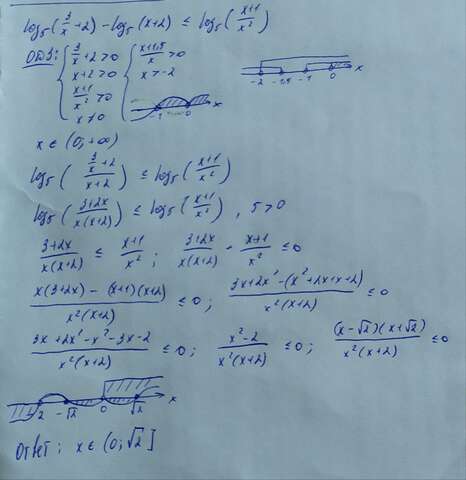 log₅(3/x + 2) − log₅(x+2) ≤ log₅((x+1)/x²)
ОДЗ: { 3/x + 2 > 0 { (x+1,5)/x > 0
x+2 > 0 x > −2
(x+1)/x² > 0
x ≠ 0
−2 −1,5 −1 0 x
−1 0 x
x ∈ (0; +∞)
log₅((3/x + 2)/(x+2)) ≤ log₅((x+1)/x²)
log₅((3+2x)/(x(x+2))) ≤ log₅((x+1)/x²) , 5 > 0
(3+2x)/(x(x+2)) ≤ (x+1)/x² ; (3+2x)/(x(x+2)) − (x+1)/x² ≤ 0
(x(3+2x) − (x+1)(x+2))/(x²(x+2)) ≤ 0 ; (3x+2x² − (x²+2x+x+2))/(x²(x+2)) ≤ 0
(3x+2x²−x²−3x−2)/(x²(x+2)) ≤ 0 ; (x²−2)/(x²(x+2)) ≤ 0 ; ((x−√2)(x+√2))/(x²(x+2)) ≤ 0
−2 −√2 0 √2 x
Ответ: x ∈ (0; √2]